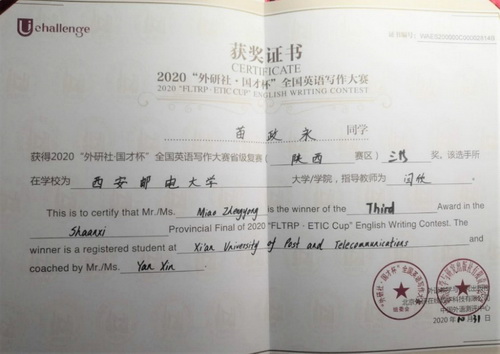 Uchallenge
获奖证书
CERTIFICATE
2020 “外研社·国才杯” 全国英语写作大赛
2020 "FLTRP · ETIC CUP" ENGLISH WRITING CONTEST
苗政永 同学
获得2020 “外研社·国才杯” 全国英语写作大赛省级复赛 ( 陕西 赛区) 三等 奖。该选手所
在学校为 西安邮电大学 大学/学院, 指导教师为 闫欣
This is to certify that Mr./Ms. Miao Zhengyong is the winner of the Third Award in the
Shaanxi Provincial Final of 2020 "FLTRP · ETIC Cup" English Writing Contest. The
winner is a registered student at Xi'an University of Post and Telecommunications and
coached by Mr./Ms. Yan Xin .
组委会
2020 年 月 31 日